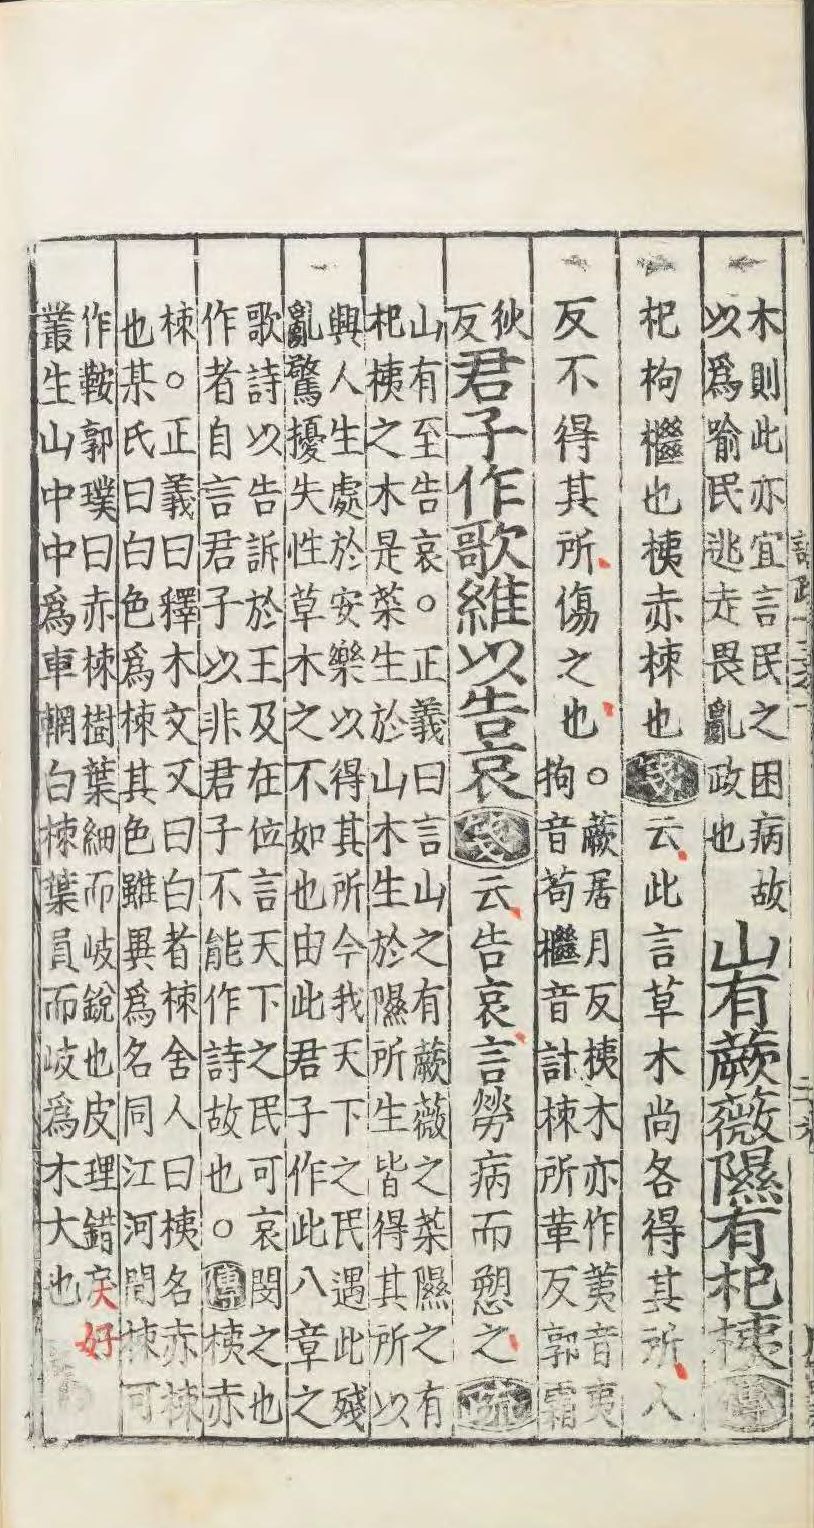 木則此亦宜言民之困病故
以爲喻民逃走畏亂政也
山有蕨薇隰有杞桋傳
杞枸檵也桋赤楝也箋云此言草木尚各得其所人
反不得其所傷之也○
蕨居月反桋木亦作荑音夷
拘音苟檵音計楝所革反郭霜
狄
反
君子作歌維以告哀箋云告哀言勞病而愬之疏
山有至告哀○正義曰言山之有蕨薇之菜隰之有
杞桋之木是菜生於山木生於隰所生皆得其所以
興人生處於安樂以得其所今我天下之民遇此殘
亂驚擾失性草木之不如也由此君子作此八章之
歌詩以告訴於王及在位言天下之民可哀閔之也
作者自言君子以非君子不能作詩故也○傳桋赤
楝○正義曰釋木文又曰白者楝舍人曰桋名赤楝
也某氏曰白色爲楝其色雖異爲名同江河間楝可
作鞍郭璞曰赤楝樹葉細而岐銳也皮理錯戾好
叢生山中中爲車輞白楝葉員而岐爲木大也